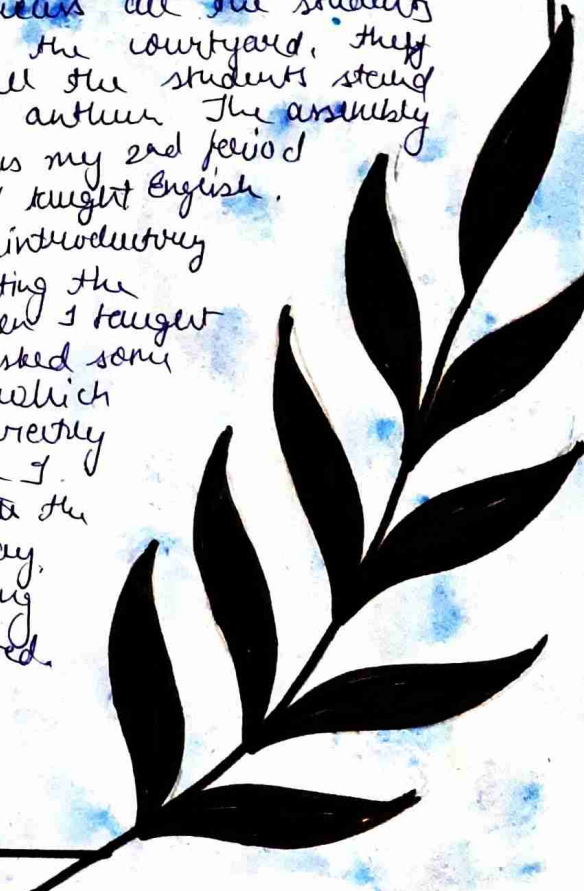 all the students
the courtyard. they
all the students stand
anthem The assembly
my 2nd period
taught English.
introductory
ting the
I taught
asked some
which
rectly
I
the
ay.
ng
ed.